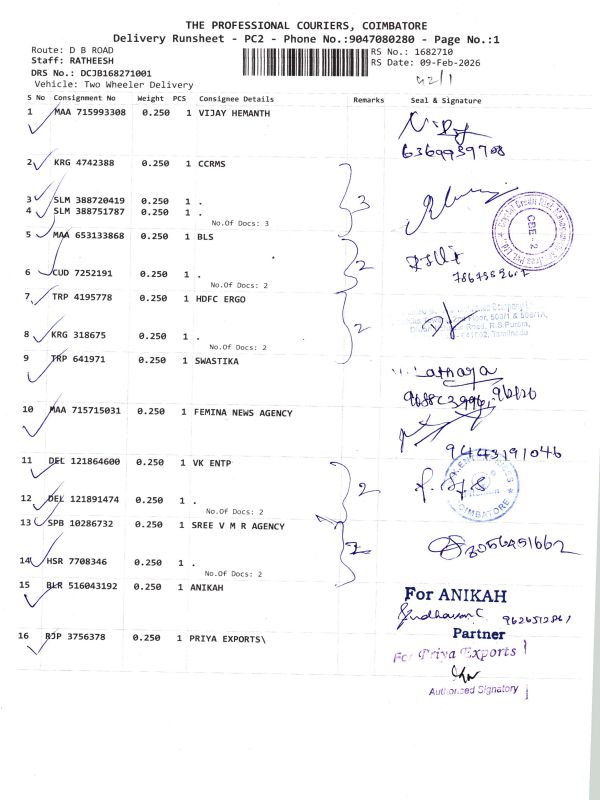 THE PROFESSIONAL COURIERS, COIMBATORE
Delivery Runsheet - PC2 - Phone No.:9047080280 - Page No.:1
Route: D B ROAD
RS No.: 1682710
Staff: RATHEESH
RS Date: 09-Feb-2026
DRS No.: DCJB168271001
42/1
Vehicle: Two Wheeler Delivery
S No Consignment No Weight PCS Consignee Details Remarks Seal & Signature
1 MAA 715993308 0.250 1 VIJAY HEMANTH
6369939708
2 KRG 4742388 0.250 1 CCRMS
3 SLM 388720419 0.250 1 .
3
4 SLM 388751787 0.250 1 .
No.Of Docs: 3
CBE - 2
5 MAA 653133868 0.250 1 BLS
2
6 CUD 7252191 0.250 1 .
No.Of Docs: 2
7 TRP 4195778 0.250 1 HDFC ERGO
2
Road, R.S.Puram,
8 KRG 318675 0.250 1 .
No.Of Docs: 2
9 TRP 641971 0.250 1 SWASTIKA
10 MAA 715715031 0.250 1 FEMINA NEWS AGENCY
9443191046
11 DEL 121864600 0.250 1 VK ENTP
2
12 DEL 121891474 0.250 1 .
No.Of Docs: 2
COIMBATORE
13 SPB 10286732 0.250 1 SREE V M R AGENCY
2
8056251662
14 HSR 7708346 0.250 1 .
No.Of Docs: 2
15 BLR 516043192 0.250 1 ANIKAH
For ANIKAH
Partner
16 RJP 3756378 0.250 1 PRIYA EXPORTS\
For Priya Exports
Authorised Signatory